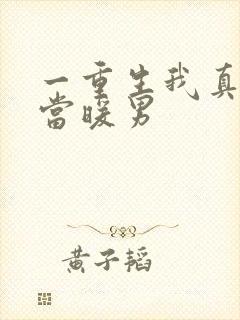 一重生我真
當暖男
黃子韬